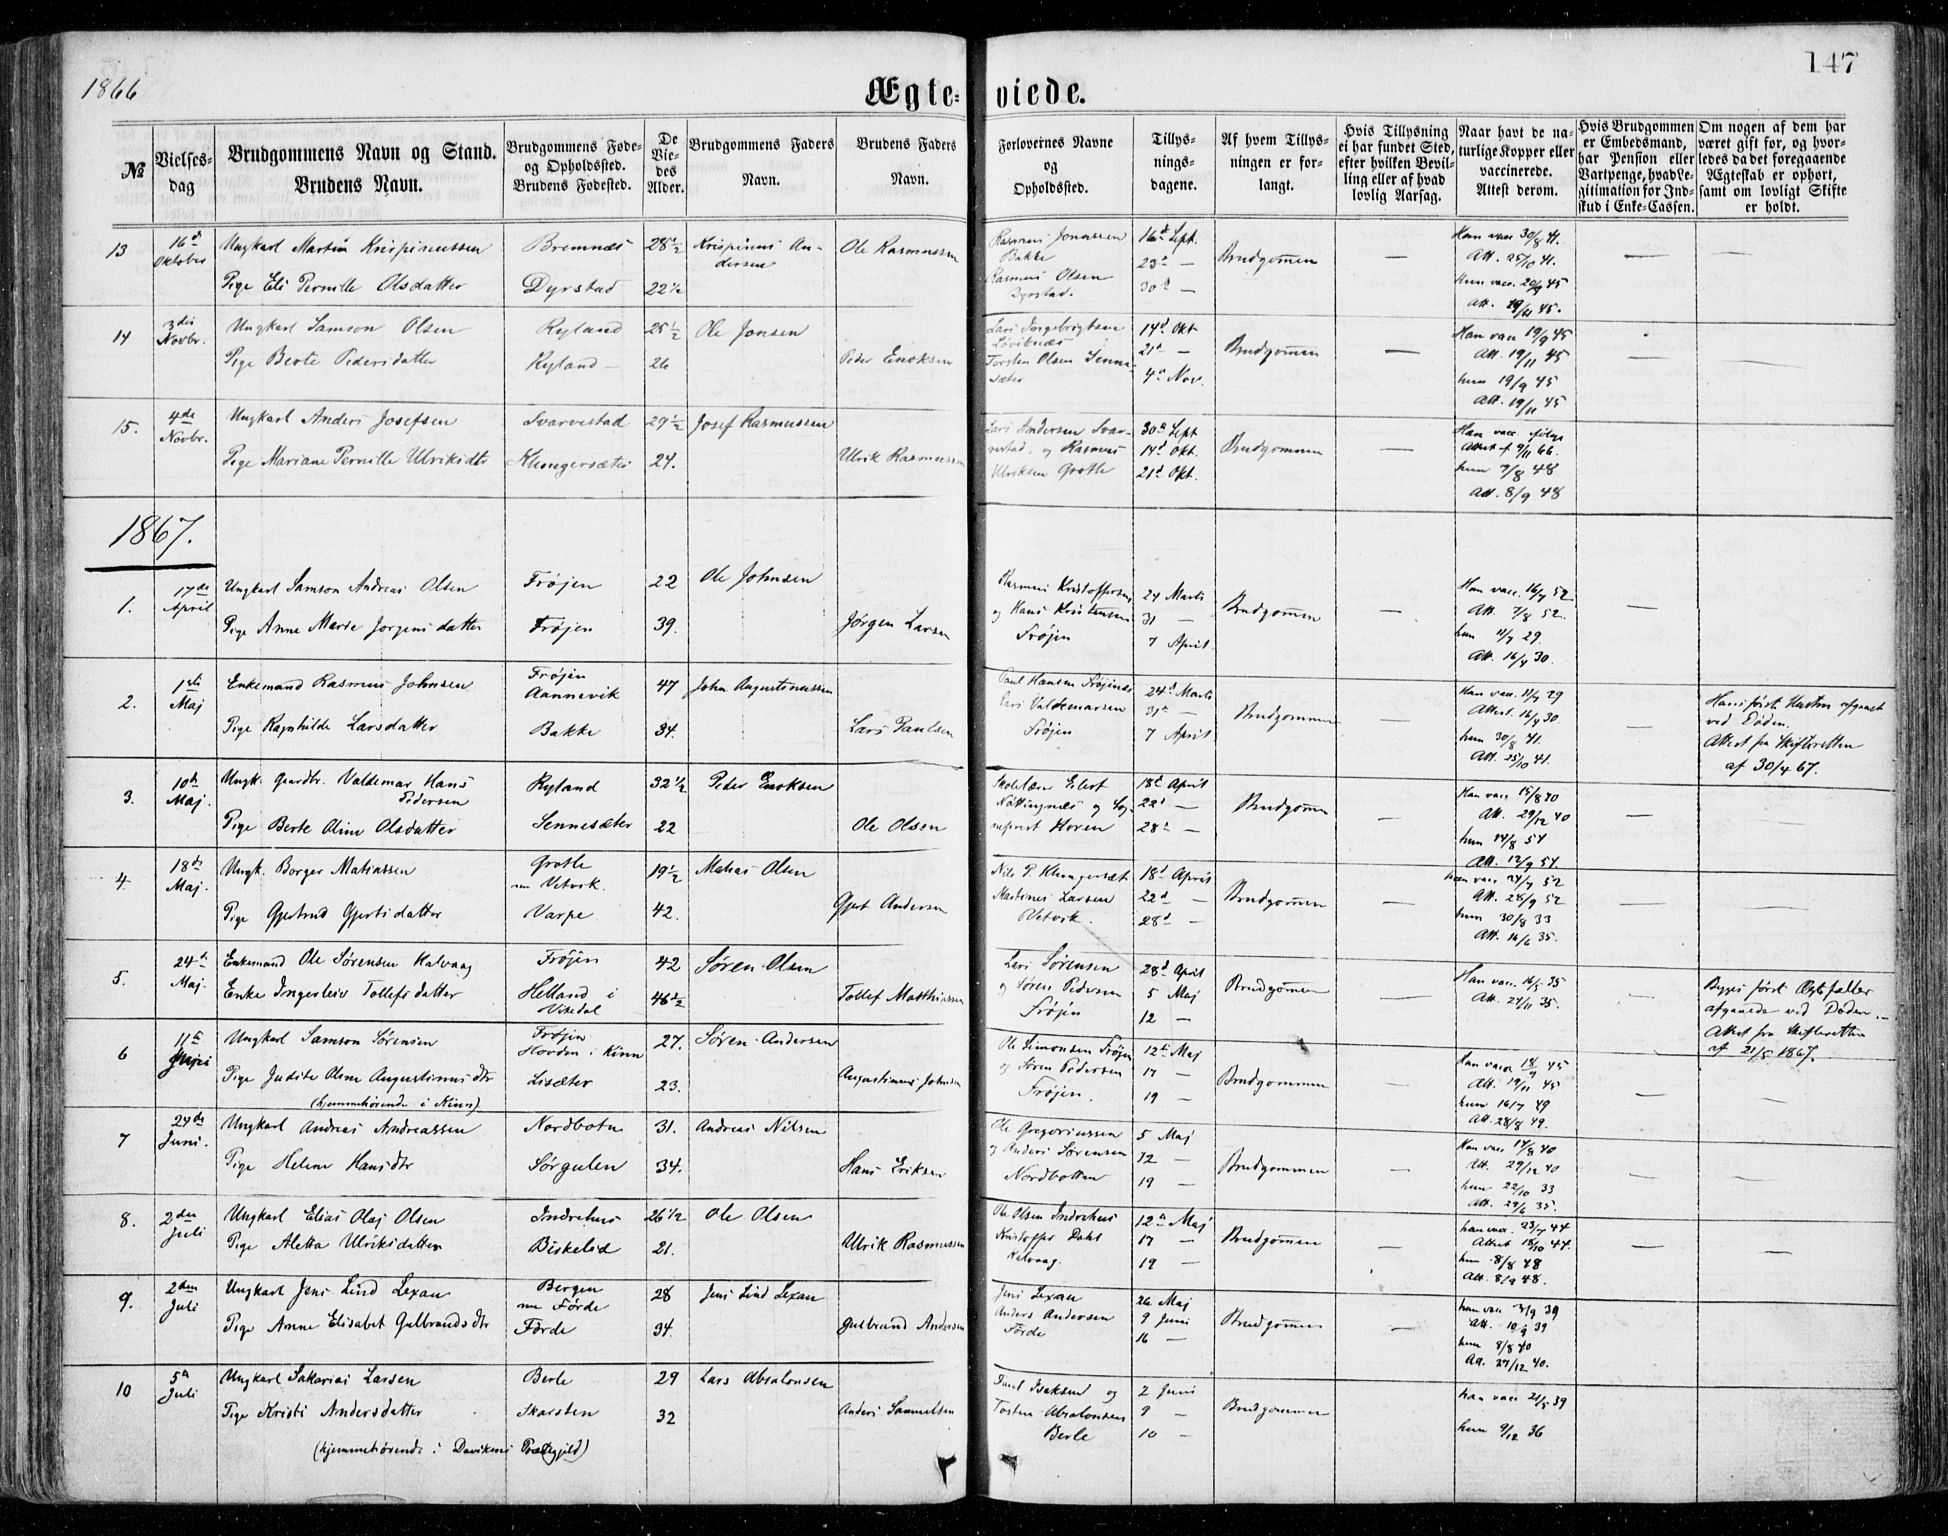 1866
147
Ægteviede.
№
Vielsesdag
Brudgommens Navn og Stand.
Brudens Navn.
Brudgommens Føde- og Opholdssted.
Brudens Fødested.
De Viedes Alder.
Brudgommens Faders Navn.
Brudens Faders Navn.
Forlovernes Navne og Opholdssted.
Tillysningsdagene.
Af hvem Tillysningen er forlangt.
Hvis Tillysning ei har fundet Sted, efter hvilken Bevilling eller af hvad lovlig Aarsag.
Naar havt de naturlige Kopper eller vaccinerede. Attest derom.
Hvis Brudgommen er Embedsmand, har Pension eller Vartpenge, hvad Legitimation for Indskud i Enke-Cassen.
Om nogen af dem har været gift for, og hvorledes da det foregaaende Ægteskab er ophørt, samt om lovligt Skifte er holdt.
13 16d Oktober Ungkarl Martin Krispinussen Bremnæs 28 1/2 Krispinus Andersen Ole Rasmussen Rasmus Jonassen Bakke 16d Sept. Brudgommen — Han vacc 30/8 41. — —
Pige Eli Pernille Olsdatter Dyrstad 22 1/2 Rasmus Olsen Dyrstad. 23d — 30d — Att. 25/10 41. Hun vacc. 20/9 45 Att. 19/11 45.
14 3die Novbr. Ungkarl Samson Olsen Ryland 25 1/2 Ole Jonsen Lars Ingebrigtsen Løviknæs 14d Okt Brudgommen — Han vacc 19/9 45 — —
Pige Berte Pedersdatter Ryland — 26 Peder Enoksen Torsten Olsen Sennesæter 21d — 4d Nov. Att. 19/11 45 hun 19/9 45 Att. 19/11 45
15. 4de Novbr. Ungkarl Anders Josefsen Svarvestad 29 1/2 Josef Rasmussen Lars Andersen Svarvestad, og Rasmus 30d Sept Brudgommen — Han vacc. ifølge Attest af 9/11 66.
Pige Mariane Pernille Ulriksdtr Klungersæter 24. Ulrik Rasmussen Ulriksen Grotle 14d Okt. 21d Okt. hun 7/8 48 Att. 8/9 48
1867.
1. 17de April Ungkarl Samson Andreas Olsen Frøjen 22 Ole Johnsen Rasmus Kristoffersen 24 Marts Brudgommen — Han vacc. 16/7 52 —
Pige Anne Marte Jørgensdatter Frøjen 39. Jørgen Larsen og Hans Kristensen Frøjen 31 — 7 April Att. 7/8 52. hun 11/7 29 Att. 16/4 30.
2. 1ste Maj Enkemand Rasmus Johnsen Frøjen Aannevik 47 John Augustinussen Paul Hansen Frøjenæs 24d Marts Brudgommen — Han vac. 11/7 29 — Hans første Hustru afgaaet ved Døden.
Pige Ragnhilde Larsdatter Bakke 34. Lars Paulsen Lars Valdemarsen Frøjen 31d — 7 April Attest. 16/4 30 hun 30/8 41. Att. 25/10 41. Attest fra Skifteretten af 30/4 67.
3. 10de Maj. Ungk. Gaardbr. Valdemar Hans Pedersen Ryland 32 1/2 Peder Enoksen Skolelærer Eilert 18d April Brudgommen — Han vacc 15/8 40 — —
Pige Berte Oline Olsdatter Sennesæter 22 Ole Olsen Nøttingnæs og Sogneprest Horen 22d — 28d — Att. 29/12 40 hun 14/8 54 Att. 12/9 54.
4. 18de Maj. Ungk. Borger Matiassen Grotle nu Vetvik. 19 1/2 Matias Olsen Nils P. Klungersæt 18d April Brudgommen — Han vacc 24/7 52 — —
Pige Gjertrud Gjertsdatter Varpe 42. Gjert Andersen Martines Larsen Vetvik. 22d — 28d — Att. 28/9 52 hun 30/8 33 Att. 16/6 35.
5. 24de Maj. Enkemand Ole Sørensen Kalvaag Frøjen 42 Søren Olsen Lars Sørensen 28d April Brudgommen — Han vacc. 16/5 35 — Begges første Ægtefæller afgaaede ved Døden. —
Enke Ingerleiv Tollefsdatter Helland i Vikedal 46 1/2 Tollef Matthiassen og Søren Pedersen Frøjen 5 Maj 12 — Att. 24/11 35. Attest fra Skifteretten af 21/5 1867.
6 11te Juni Ungkarl Samson Sørensen Frøjen Hovden i Kinn 27. Søren Andersen Ole Simonsen Frøjen 12te Maj Brudgommen — Han vacc 18/9 45 — —
Pige Judite Oline Augustinusdtr Lisæter 23. Augustinus Johnsen og Søren Pedersen Frøjen. 17 — 19 — Att. 19/11 45 hun 16/7 49 Att. 28/8 49.
(hjemmehørende i Kinn)
7 24de Juni. Ungkarl Andreas Andreassen Nordbotn 31. Andreas Nilsen Ole Gregoriussen 5 Maj Brudgommen — Han vacc 14/8 40 — —
Pige Helene Hansdtr Sørgulen 34. Hans Eriksen og Anders Sørensen Nordbotten 12 — 19 — Att. 29/12 40 hun 22/10 33 Att. 29/6 35.
8. 2den Juli Ungkarl Elias Olaj Olsen Indrehus 26 1/2 Ole Olsen Ole Olsen Indrehus 12d Maj Brudgommen — han vacc. 23/7 44 — —
Pige Aletta Ulriksdatter Birkelid 21. Ulrik Rasmussen Kristoffer Dahl Kalvaag. 17 — 19 — Attest 18/10 44. hun 8/8 48 Att. 8/9 48.
9. 2den Juli Ungkarl Jens Lind Lexau Bergen nu Førde 28 Jens Lind Lexau Jens Lexau 26 Maj Brudgommen — han vacc 3/9 39
Pige Anne Elisabet Gulbrandsdtr Førde 34. Gulbrand Andersen Anders Andersen Førde 9 Juni 16 — Att. 10/9 39 hun 8/8 40 Att. 27/12 40.
10 5d Juli Ungkarl Sakarias Larsen Berle 29 Lars Absalonsen Daniel Isaksen og 2 Juni Brudgommen han vacc 21/5 39
Pige Kristi Andersdatter Skarsten 32 Anders Samuelsen Tosten Absalonsen Berle 9 — 10 — hun 9/12 36
(hjemmehørende i Davikens Præstegjeld)